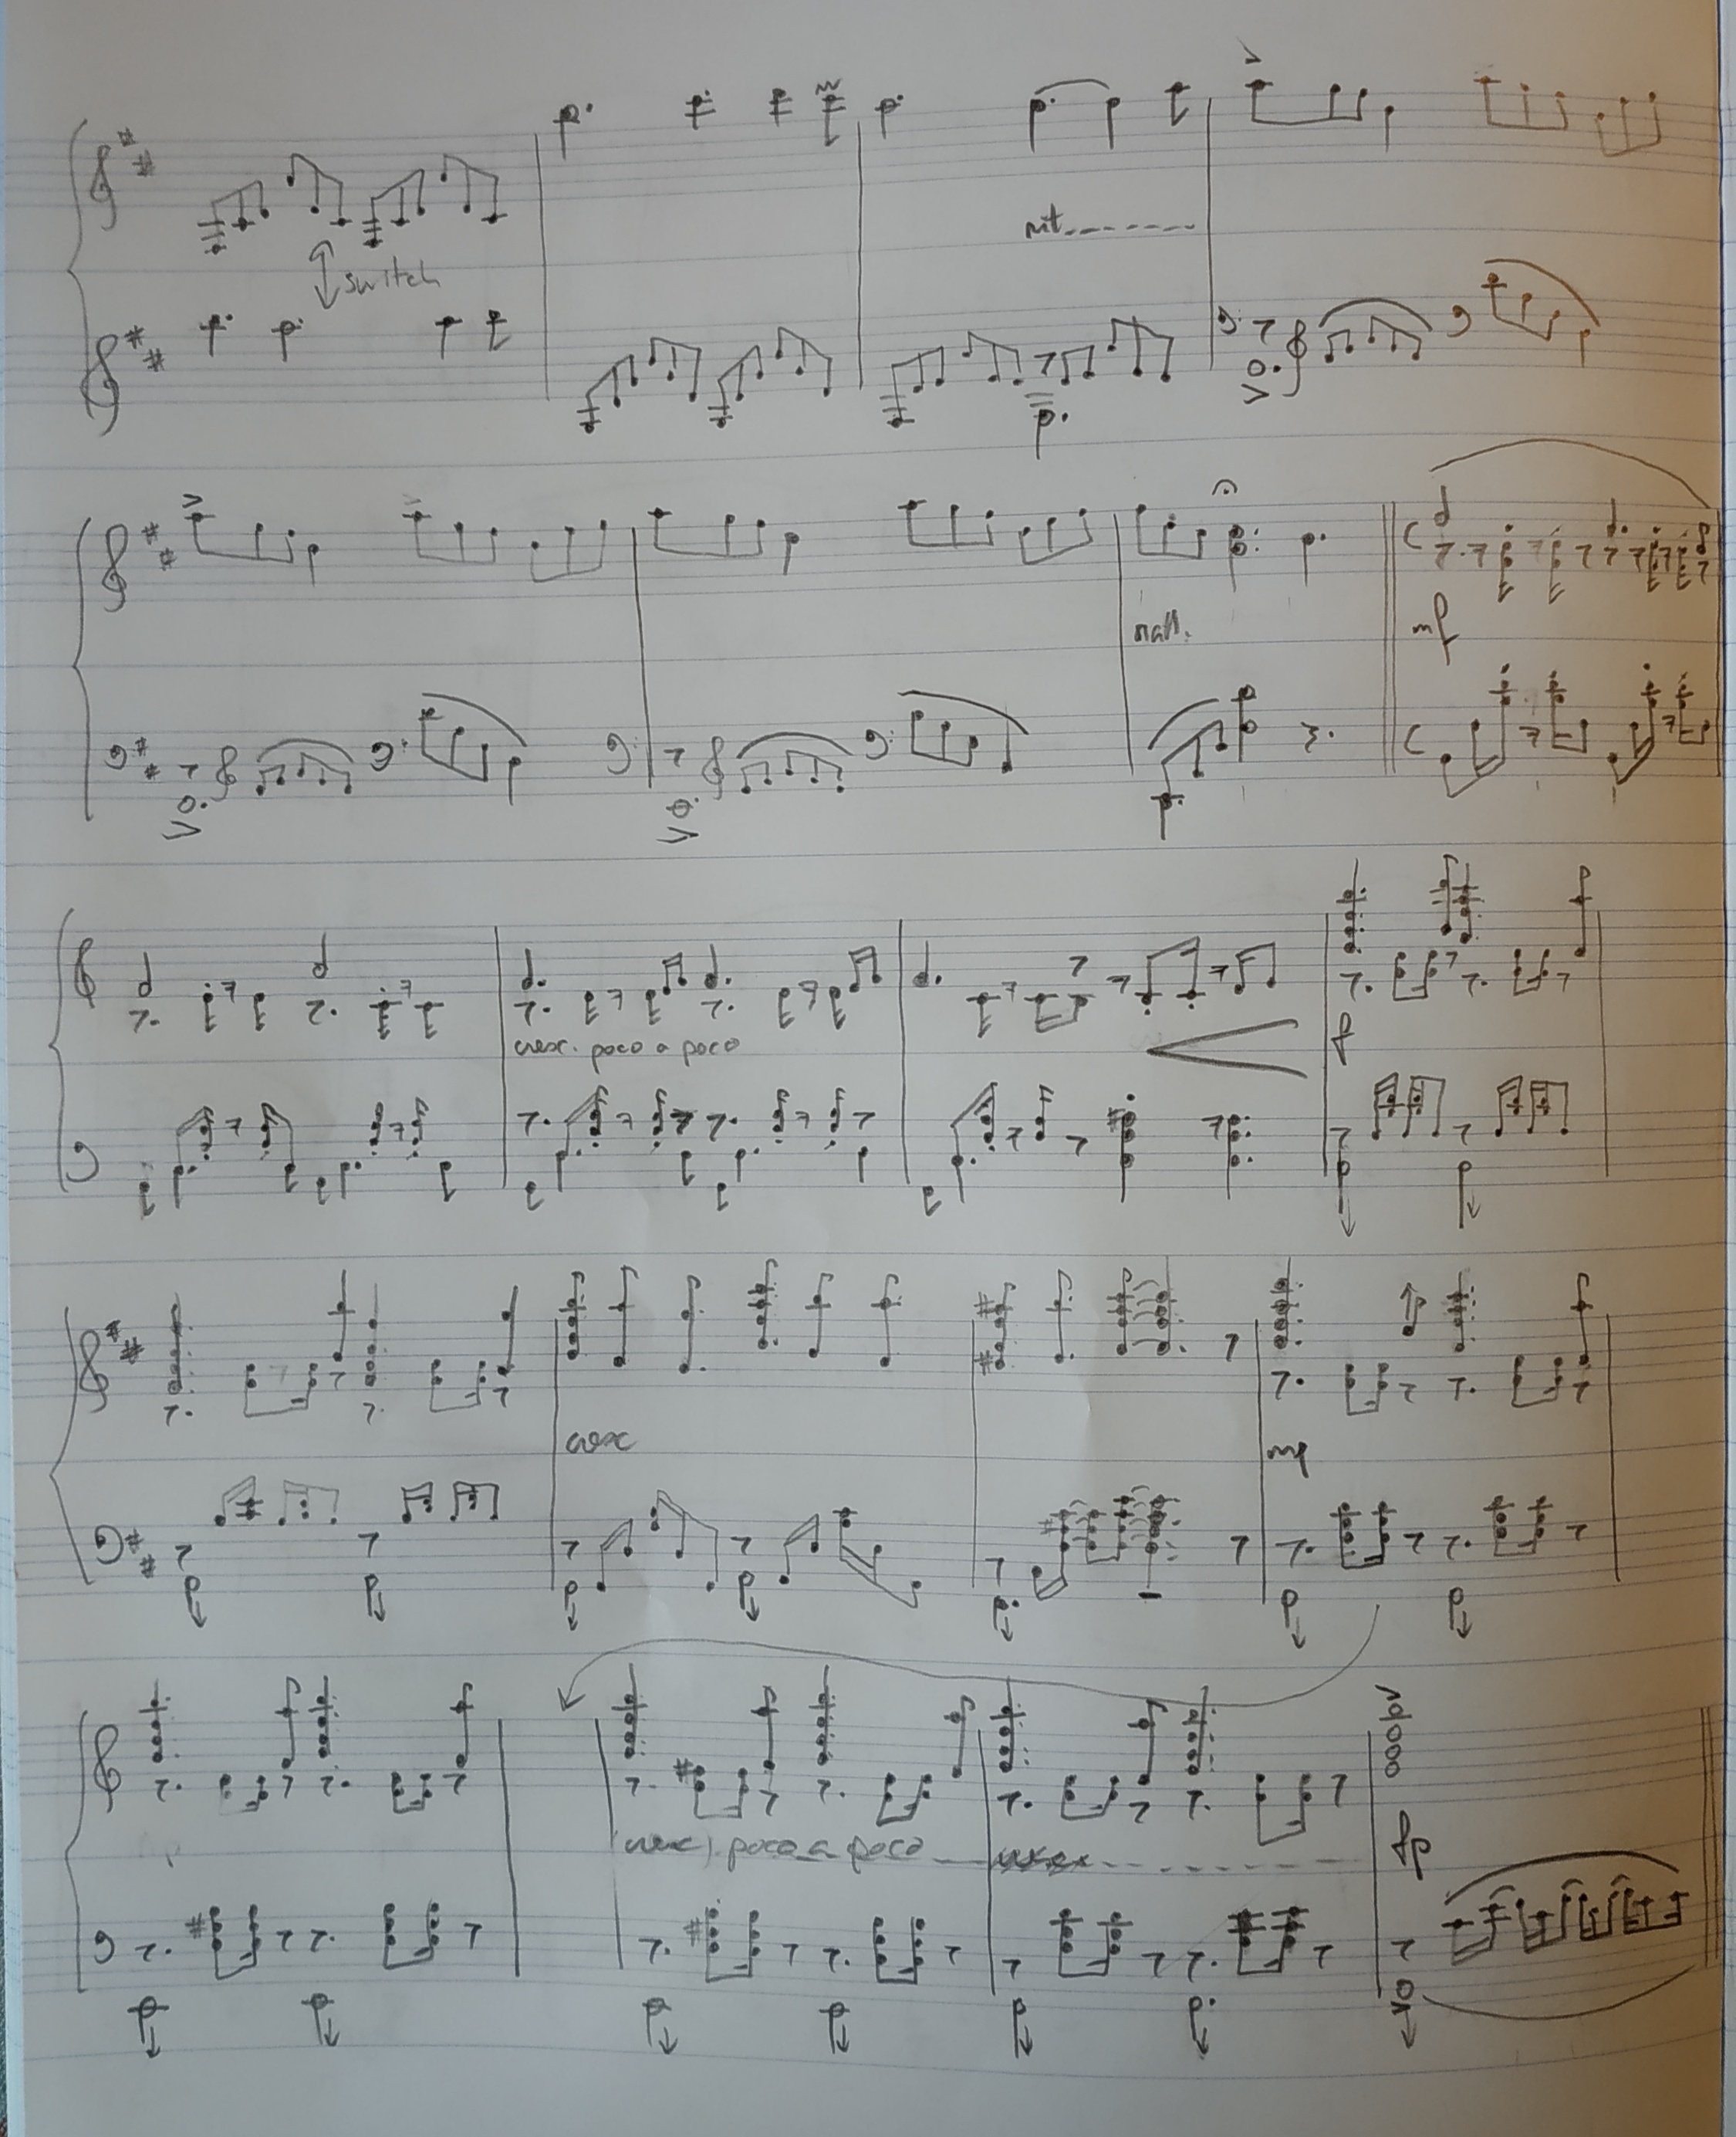 rit.
switch
rall.
mf
cresc. poco a poco
f
cresc
mf
(cresc) poco a poco
fp